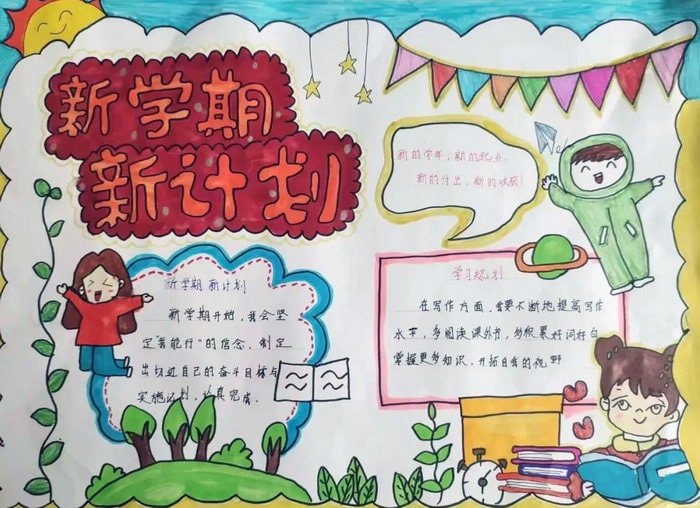 新学期
新计划
新的学年,新的起点,
新的付出,新的收获!
新学期 新计划
新学期开始,我会坚
定"我能行"的信念,制定
出切近自己的奋斗目标与
实施计划,认真完成.
学习规划
在写作方面,需要不断地提高写作
水平,多阅读课外书,多积累好词好句
掌握更多知识,开拓自身的视野